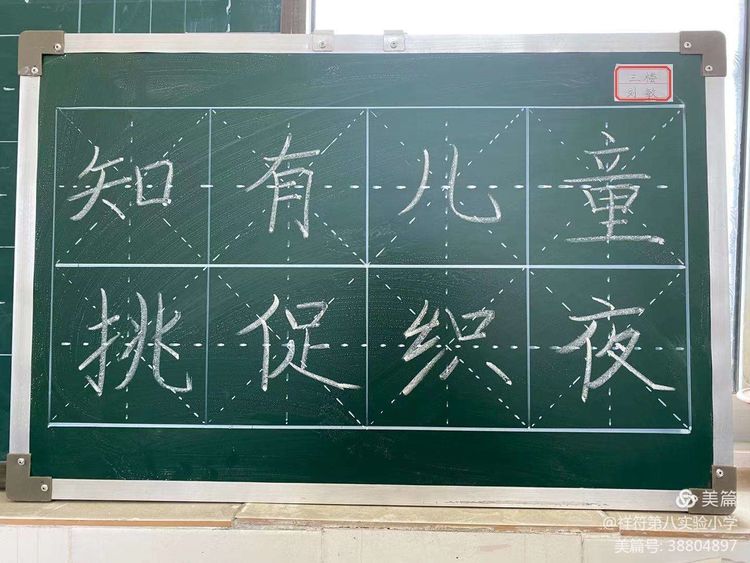 三楼
刘敏
知有儿童
挑促织夜
美篇
@祥符第八实验小学
美篇号: 38804897